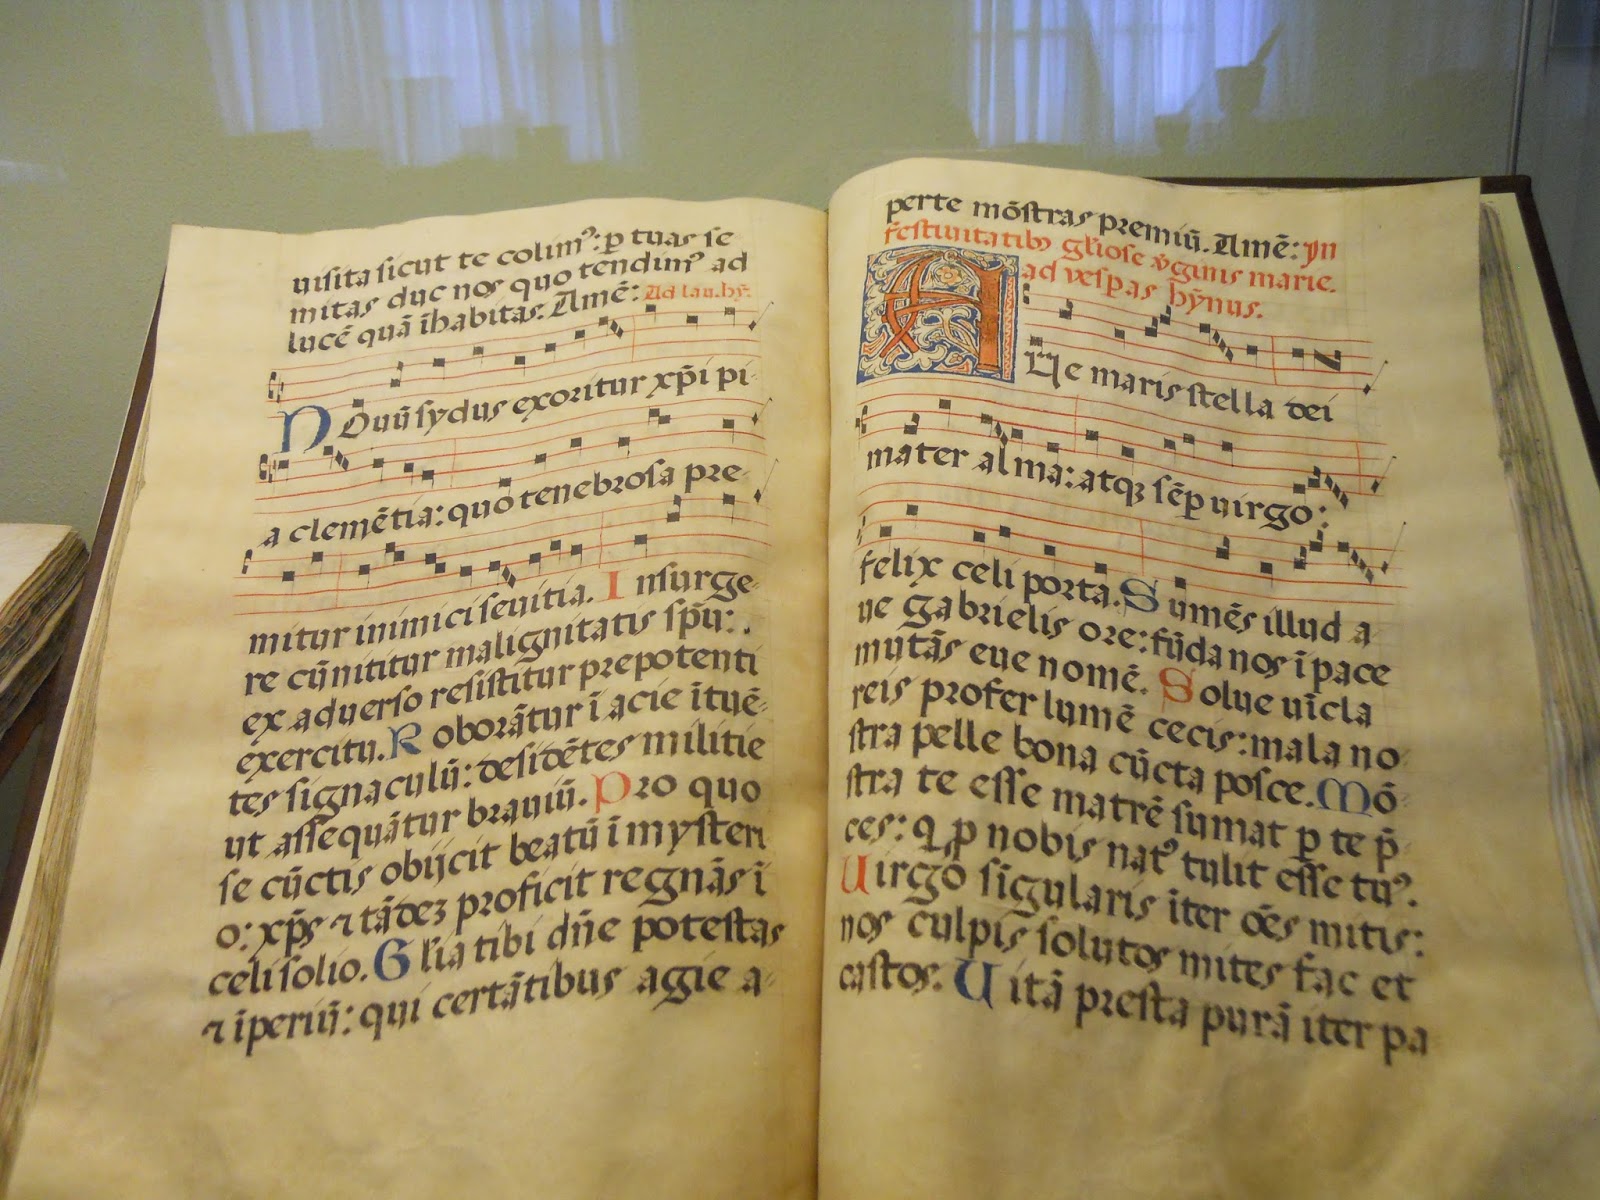 uisita sicut te colim⁹: ꝑ tuas se
mitas duc nos quo tendim⁹ ad
lucē quā īhabitas. Amē: Ad lau. hȳ.
Nouū sydus exoritur xp̄i pi-
a clemētia: quo tenebrosa pre-
mitur inimici seuitia. Insurge-
re cū nititur malignitatis sp̄u: .
ex aduerso resistitur prepotenti
exercitu. Roborātur ī acie ītuē-
tes signaculū: desidētes militie
ut assequātur brauiū. Pro quo
se cūctis obijcit beatū ī mysteri
o: xp̄s ⁊ tādeꝫ proficit regnās ī
celi solio. Gl̄ia tibi dn̄e potestas
⁊ īperiū: qui certātibus agie a-
perte mōstras premiū. Amē: yn
festiuitatib⁹ gl̄iose v̄ginis marie.
ad vesꝑas hȳnus.
Aue maris stella dei
mater alma: atqꝫ sēꝑ uirgo:
felix celi porta. Sumēs illud a
ue gabrielis ore: fūda nos ī pace
mutās eue nomē. Solue uīcla
reis profer lumē cecis: mala no-
stra pelle bona cūcta posce. Mō-
stra te esse matrē sumat ꝑ te p̄-
ces: q̇ ꝓ nobis nat⁹ tulit esse tu⁹.
Uirgo sīgularis īter oēs mitis:
nos culpis solutos mites fac et
castos. Uitā presta purā iter pa